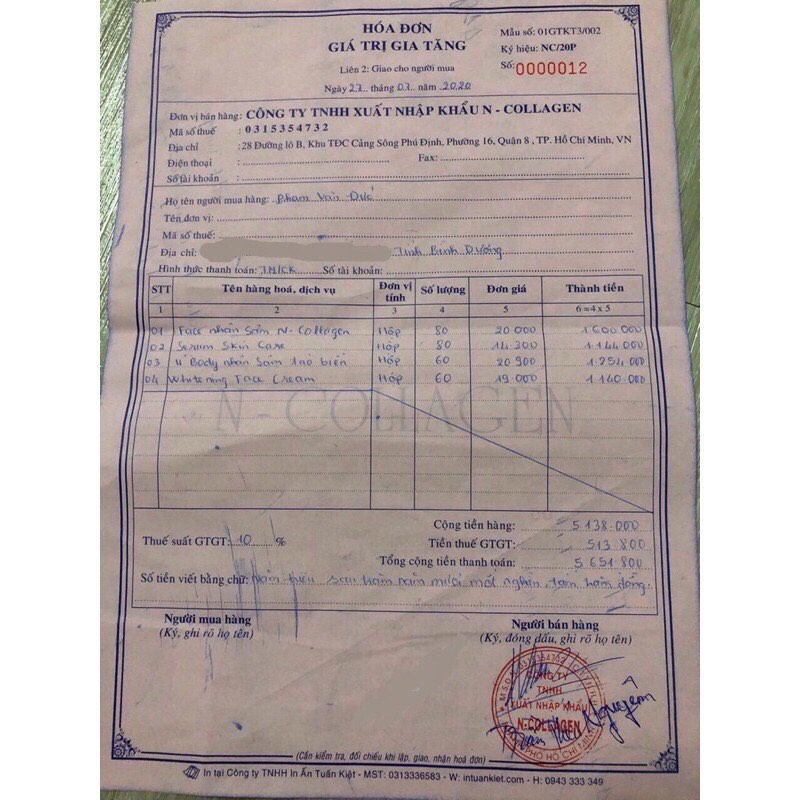 HÓA ĐƠN
GIÁ TRỊ GIA TĂNG
Liên 2: Giao cho người mua
Ngày 27 tháng 07 năm 2020
Mẫu số: 01GTKT3/002
Ký hiệu: NC/20P
Số: 0000012
Đơn vị bán hàng: CÔNG TY TNHH XUẤT NHẬP KHẨU N - COLLAGEN
Mã số thuế : 0315354732
Địa chỉ : 28 Đường lô B, Khu TĐC Cảng Sông Phú Định, Phường 16, Quận 8 , TP. Hồ Chí Minh, VN
Điện thoại : Fax:
Số tài khoản :
Họ tên người mua hàng: Phạm Văn Đức
Tên đơn vị:
Mã số thuế:
Địa chỉ: Tỉnh Bình Dương
Hình thức thanh toán: TM/CK Số tài khoản:
STT Tên hàng hoá, dịch vụ Đơn vị tính Số lượng Đơn giá Thành tiền
1 2 3 4 5 6=4x5
01 Face nhân sâm N-Collagen Hộp 80 20 000 1 600 000
02 Serum Skin Care Hộp 80 14 300 1 144 000
03 Ủ Body nhân sâm tảo biển Hộp 60 20 900 1 254 000
04 Whitening Face Cream Hộp 60 19 000 1 140 000
N - COLLAGEN
Cộng tiền hàng: 5 138 000
Thuế suất GTGT: 10 % Tiền thuế GTGT: 513 800
Tổng cộng tiền thanh toán: 5 651 800
Số tiền viết bằng chữ: Năm triệu sáu trăm năm mươi mốt nghìn tám trăm đồng.
Người mua hàng
(Ký, ghi rõ họ tên)
Người bán hàng
(Ký, đóng dấu, ghi rõ họ tên)
CÔNG TY
TNHH
XUẤT NHẬP KHẨU
N-COLLAGEN
(Cần kiểm tra, đối chiếu khi lập, giao, nhận hoá đơn)
In tại Công ty TNHH In Ấn Tuấn Kiệt - MST: 0313336583 - W: intuankiet.com - H: 0943 333 349